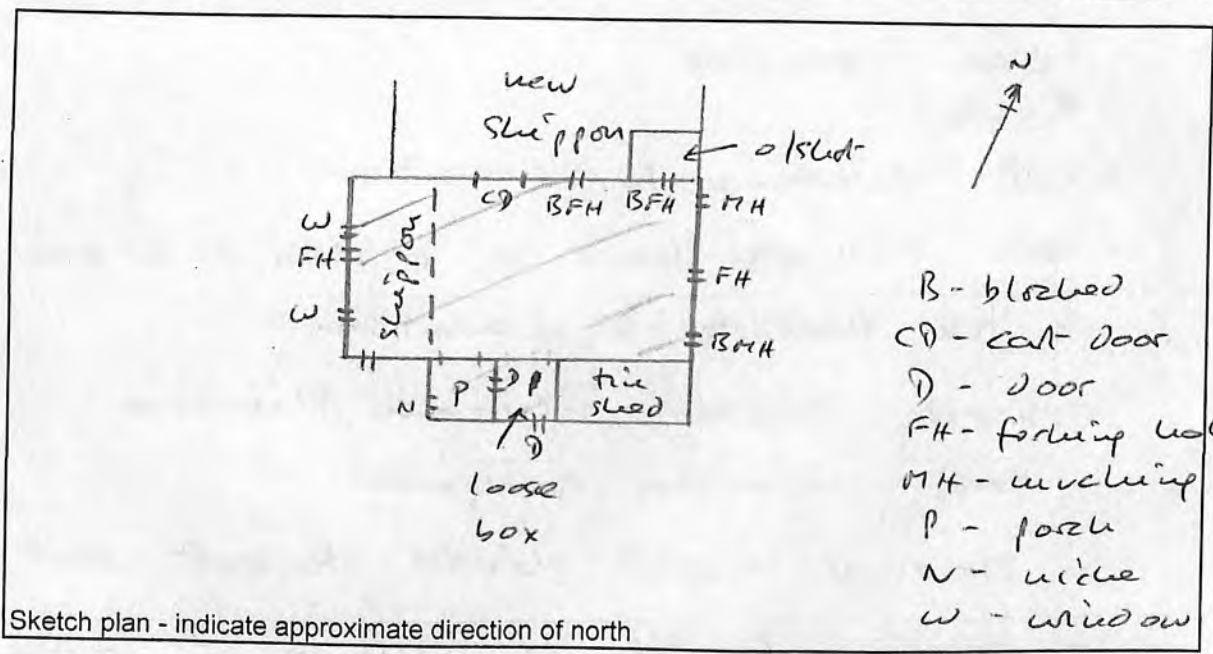 new
shippon
N
o/shot
CD BFH BFH MH
W
FH
W
shippon
FH
BMH
N P D P tin shed
D
loose
box
B - blocked
CD - cart door
D - door
FH - forking hol
MH - mucking
P - porch
N - niche
W - window
Sketch plan - indicate approximate direction of north